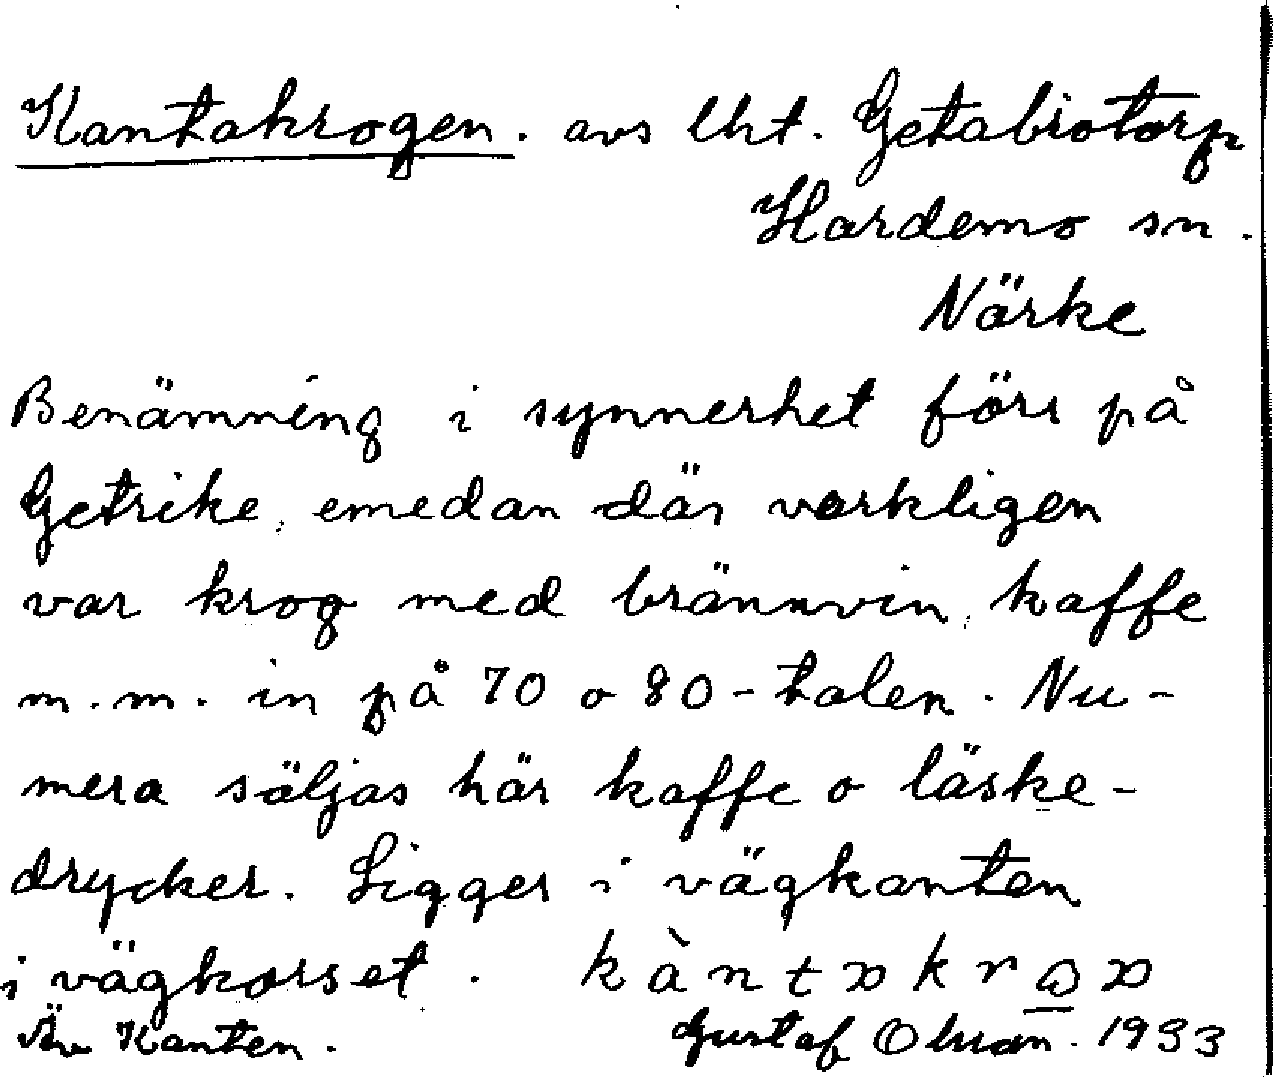 Kantakrogen. avs lht. Getabrotorp
Hardemo sn.
Närke
Benämning i synnerhet förr på
Getrike, emedan där verkligen
var krog med brännvin, kaffe
m.m. in på 70 o 80-talen. Nu-
mera säljas här kaffe o läske-
drycker. Ligger i vägkanten
i vägkorset.
Äv Kanten. Gustaf Olson. 1933